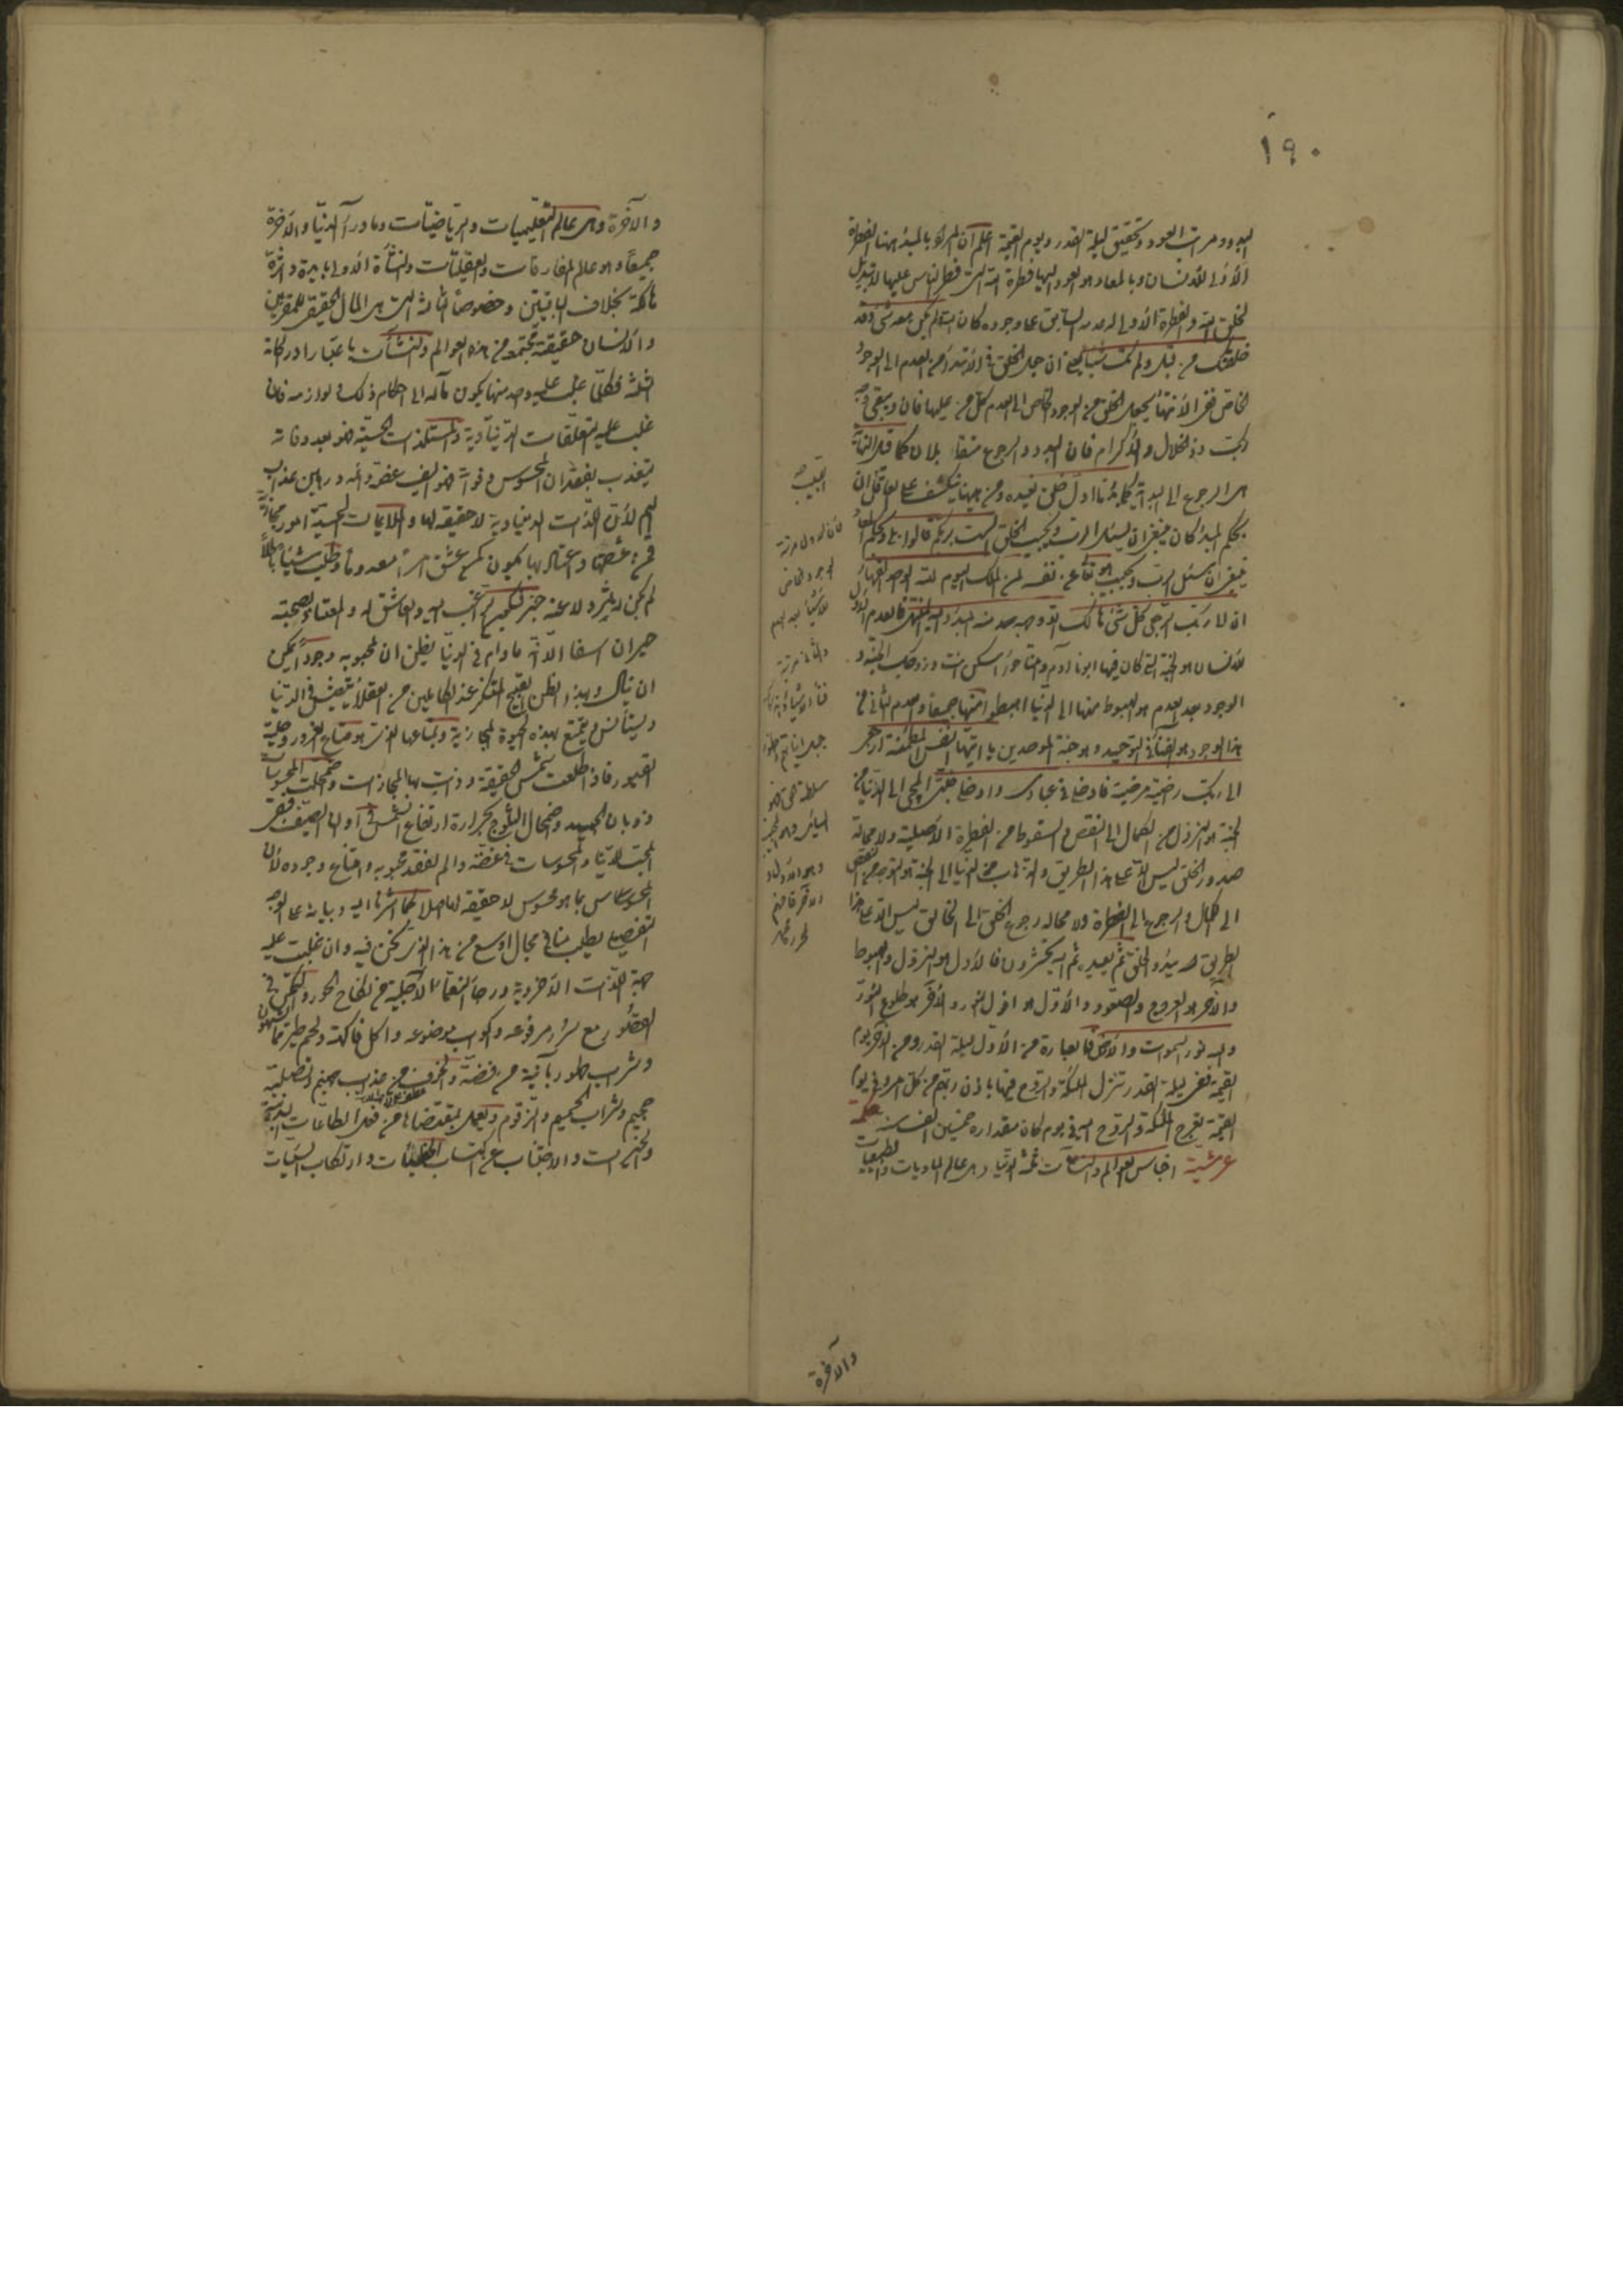 ١٩٠
البدو ومراتب العود وتحقيق ليلة القدر ويوم القيمة اعلم ان المراد بالمبدء ههنا الفطرة
الأولى للانسان وبالمعاد هو العود اليها فطرة الله التي فطر الناس عليها لا تبديل
لخلق الله والفطرة الأولى العدم السابق على وجوده كان الله ولم يكن معه شئ وقد
خلقتك من قبل ولم تك شيئا يعني ان جعل الخلق في الابتداء من العدم الى الوجود
الخاص ففي الانتهاء يجعل الخلق من الوجود الخاص الى العدم كل من عليها فان ويبقى وجه
ربك ذو الجلال والاكرام فان البدو والرجوع متقابلان كما قيل النهاية
هي الرجوع الى البداية كما بدأنا اول خلق نعيده ومن ههنا ينكشف على العاقل ان
بحكم المبدء كان ينبغي ان يسئل الرب ويجيب الخلق ألست بربكم قالوا بلى وبحكم المعاد
ينبغي ان يسئل الرب ويجيب هو ايضا عن نفسه لمن الملك اليوم لله الواحد القهار
ان الى ربك الرجعى كل شئ هالك الا وجهه منه المبدء واليه المنتهى فالعدم الأول
للانسان هو الجنة التي كان فيها ابونا آدم وامنا حواء اسكن انت وزوجك الجنة و
الوجود بعد العدم هو الهبوط منها الى الدنيا اهبطوا منها جميعا والعدم الثاني من
هذا الوجود هو الفناء في التوحيد وهو جنة الموحدين يا ايتها النفس المطمئنة ارجعي
الى ربك راضية مرضية فادخلي في عبادي وادخلي جنتي المجئ الى الدنيا من
الجنة هو النزول من الكمال الى النقص والسقوط من الفطرة الاصلية ولا محالة
صدور الخلق ليس الا على هذا الطريق والذهاب من الدنيا الى الجنة هو التوجه من النقص
الى الكمال والرجوع الى الفطرة ولا محالة رجوع الخلق الى الخالق ليس الا على هذا
الطريق الله يبدؤ الخلق ثم يعيده ثم اليه يحشرون فالأول هو النزول والهبوط
والآخر هو العروج والصعود والأول هو افول النور والآخر هو طلوع النور
والله نور السموات والارض فالعبارة من الأول ليلة القدر ومن الآخر يوم
القيمة ففي ليلة القدر تنزل الملئكة والروح فيها باذن ربهم من كل امر وفي يوم
القيمة تعرج الملئكة والروح اليه في يوم كان مقداره خمسين الف سنة حكمة
عرشية اجناس العوالم والنشآت ثلثة الدنيا وهي عالم الماديات والطبيعيات
والآخرة
والآخرة وهي عالم التعليميات والرياضيات وما وراء الدنيا والآخرة
جميعا وهو عالم المفارقات والعقليات والنشأة الاولى بايدة داثرة
هالكة بخلاف الباقيتين وخصوصا الثالثة التي هي المآل الحقيقي للمقربين
والانسان حقيقة مجتمعة من هذه العوالم والنشآت باعتبار ادراكاته
الثلثة فكلما غلب عليه واحد منها يكون مآله الى احكام ذلك ولوازمه فان
غلب عليه التعلقات الدنياوية والمستلذات الحسية فهو بعد وفاته
يتعذب بفقدان المحسوس وفواته فهو اليف غصة والم ورهين عذاب
اليم لأن اللذات الدنياوية لا حقيقة لها والملايمات الحسية امور مجازية
فمن عشقها واعتاد بها يكون كمن عشق امرا معدوما وطلب شيئا باطلا
لم يكن له اثر ولا عنه خبر
حيران اسفا الا انه ما دام في الدنيا يظن ان لمحبوبه وجودا يمكن
ان ينال وبهذا الظن القبيح المنكر عند الكاملين من العقلاء يتعيش في الدنيا
ويستأنس ويتمتع بهذه الحيوة المجازية ومتاعها الذي هو متاع الغرور وحلية
القبور فاذا طلعت شمس الحقيقة وذابت بها المجازات واضمحلت المحبوبات
ذوبان الجليد واضمحلال الثلوج بحرارة ارتفاع الشمس في اوان الصيف فبقي
المحب للدنيا والمحسوسات في غصة والم لفقد محبوبه وامتناع وجوده لأن
المحسوس بما هو محسوس لا حقيقة له اصلا كما اشرنا اليه وبيانه على الوجه
التفصيلي يطلب منا في مجال اوسع من هذا الذي نحن فيه وان غلبت عليه
محبة اللذات الأخروية ورجاء النعماء الآجلية من نكاح الحور والتمكن في
القصور مع سرر مرفوعة واكواب موضوعة واكل فاكهة ولحم طير مما يشتهون
وشرب طهور بآنية من فضة والخوف من عذاب جهنم وتصلية
جحيم وشراب الحميم والزقوم ويعمل بمقتضاها من فعل الطاعات البدنية
والخيرات والاجتناب عن اكتساب الخطيئات وارتكاب السيئات